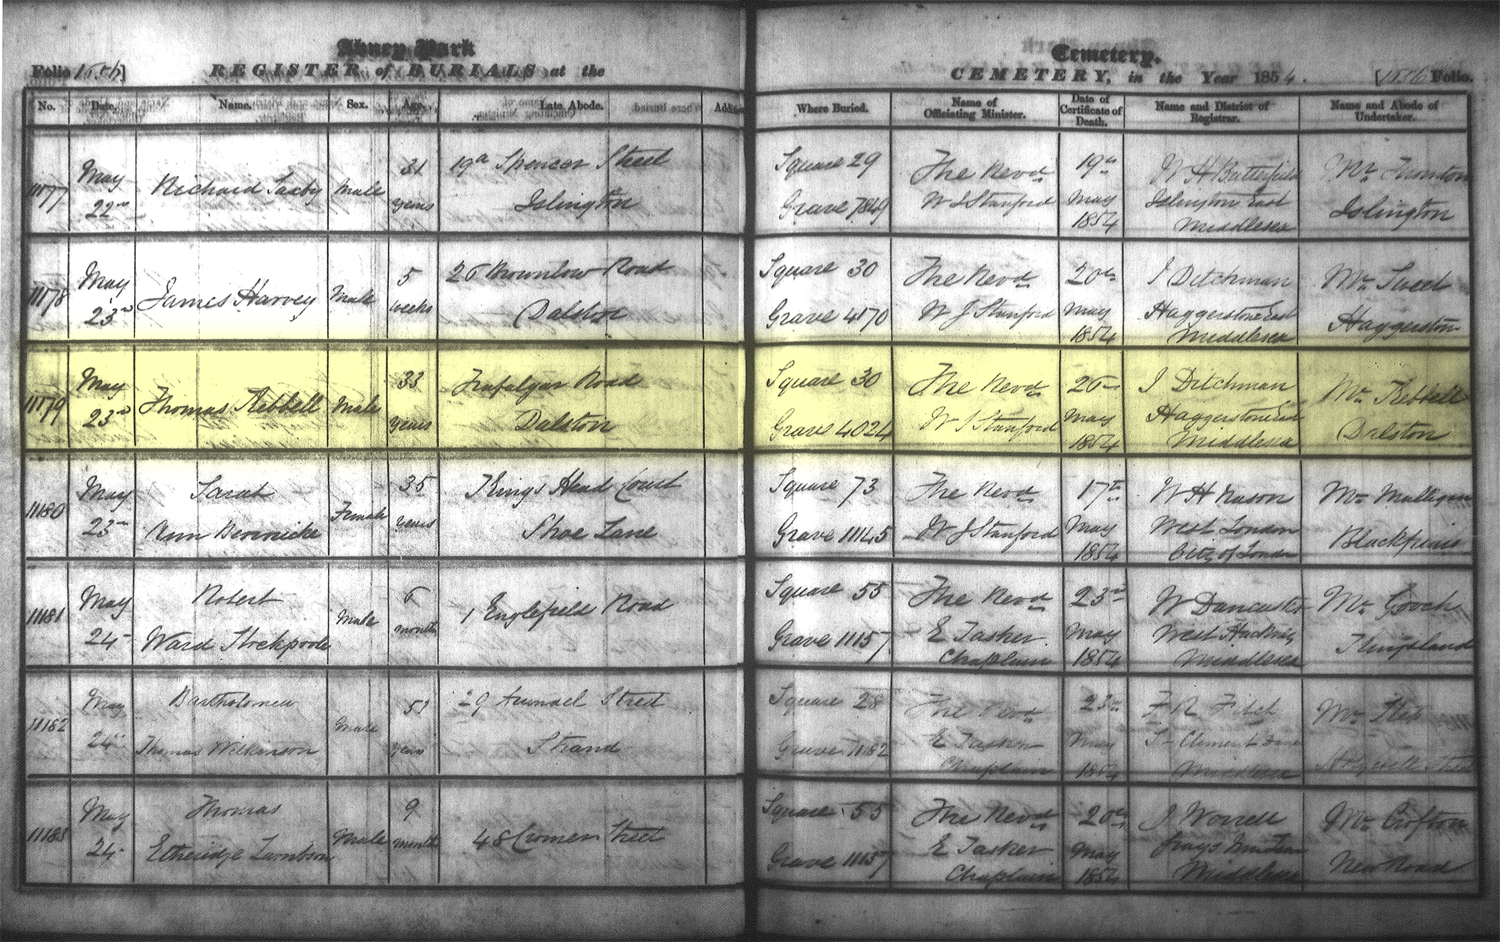 Abney Park
Folio
REGISTER of BURIALS at the
No. Date. Name. Sex. Age. Late Abode.
11177 May 22nd Richard Saxby Male 31 years 19a Spencer Street Islington
11178 May 23rd James Harvey Male 5 weeks 26 Brownlow Road Dalston
11179 May 23rd Thomas Kebbell Male 33 years Trafalgar Road Dalston
11180 May 23rd Sarah Ann Berwicke Female 35 years Kings Head Court Shoe Lane
11181 May 24 Robert Ward Stockpoole Male 6 month 1 Englefield Road
11182 May 24 Bartholomew Thomas Wilkinson Male 51 years 29 Arundel Street Strand
11183 May 24 Thomas Etheridge Male 9 month 48 Cromer Street
Cemetery.
CEMETERY, in the Year 1854. Folio.
Where Buried. Name of Officiating Minister. Date of Certificate of Death. Name and District of Registrar. Name and Abode of Undertaker.
Square 29 Grave 7849 The Revd W J Stanford 19th May 1854 W H Butterfield Islington East Middlesex Mr Islington
Square 30 Grave 4170 The Revd W J Stanford 20th May 1854 J Ditchman Haggerstone East Middlesex Mr Sweet Haggerston
Square 30 Grave 4024 The Revd W J Stanford May 1854 J Ditchman Haggerstone East Middlesex Mr Kebbell Dalston
Square 73 Grave 11145 The Revd W J Stanford 17th May 1854 W H Nason West London City of London Mr Blackfriars
Square 55 Grave 11157 The Revd E Tasker Chaplain 23rd May 1854 W Doncaster West Hackney Middlesex Mr Gooch Kingsland
Square 28 Grave 11182 The Revd E Tasker Chaplain 23rd May 1854 F R Fitch St Clement Danes Middlesex Mr
Square 55 Grave 11157 The Revd E Tasker Chaplain 20th May 1854 J Worrell Grays Inn Middlesex Mr Crofton New Road